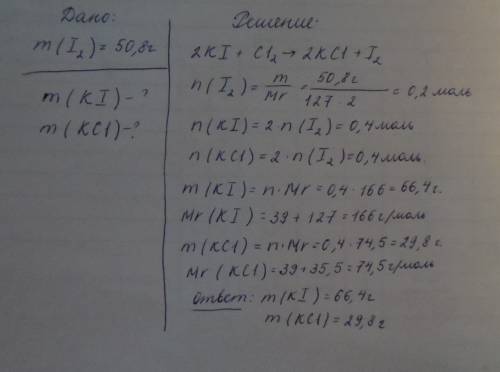 Дано:
m(I₂) = 50,8г
m(KI) - ?
m(KCl) - ?
Решение:
2KI + Cl₂ → 2KCl + I₂
n(I₂) = m/Mr = 50,8г/127·2 = 0,2 моль
n(KI) = 2·n(I₂) = 0,4 моль
n(KCl) = 2·n(I₂) = 0,4 моль.
m(KI) = n·Mr = 0,4·166 = 66,4г.
Mr(KI) = 39 + 127 = 166 г/моль
m(KCl) = n·Mr = 0,4·74,5 = 29,8г.
Mr(KCl) = 39 + 35,5 = 74,5 г/моль
Ответ: m(KI) = 66,4г
m(KCl) = 29,8г